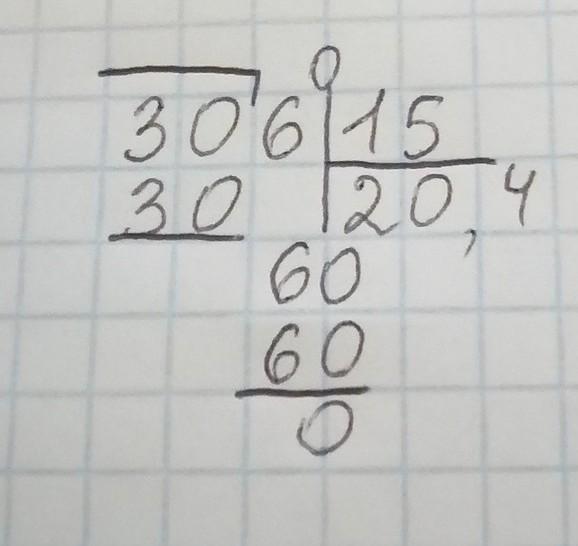 0
306 15
30 20,4
60
60
0